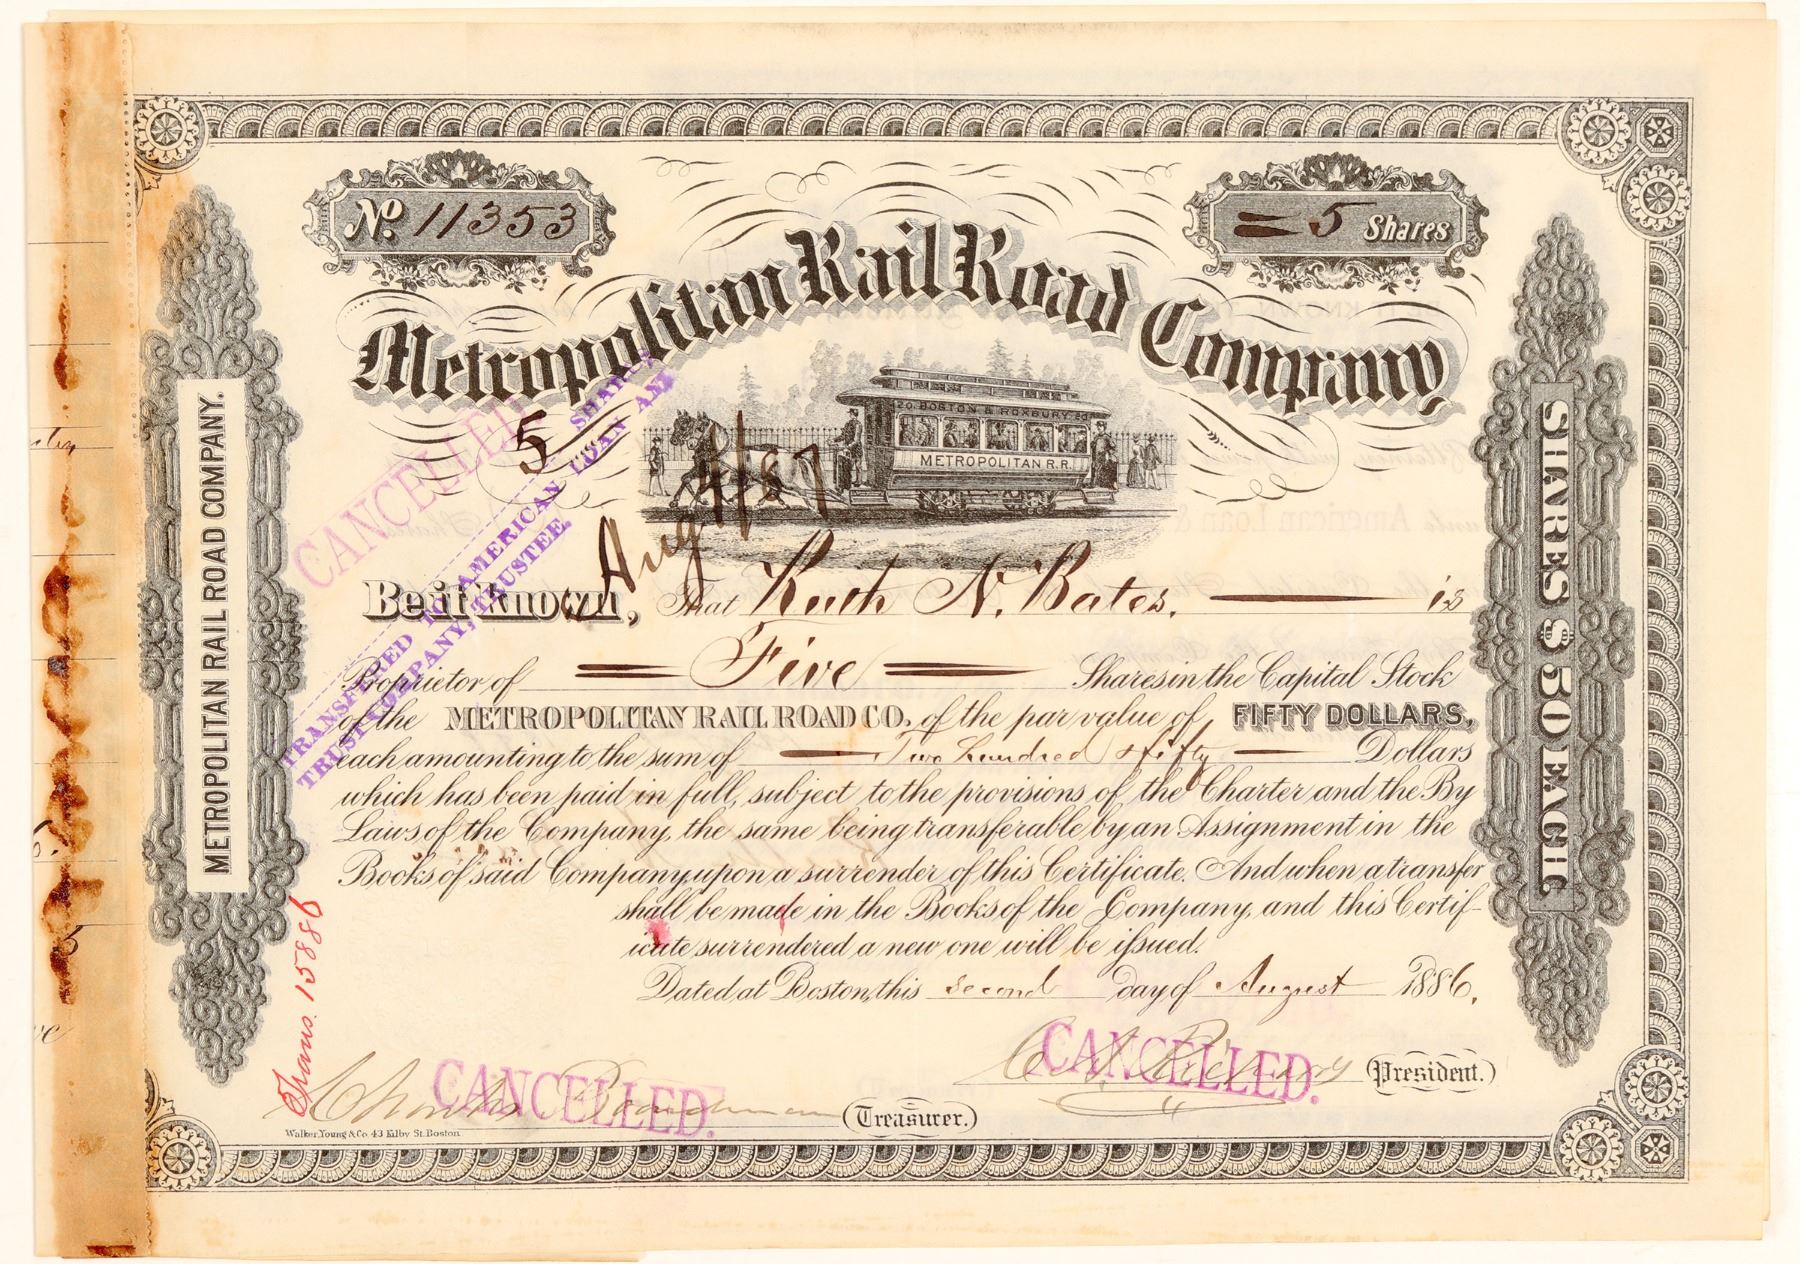 No. 11353
5 Shares
Metropolitan Rail Road Company
20. BOSTON & ROXBURY 20.
METROPOLITAN R.R.
CANCELLED
5 SHARES
TRANSFERRED TO AMERICAN LOAN AND
TRUST COMPANY, TRUSTEE.
Aug 4/87
Be it Known, That Ruth N. Bates. is
Proprietor of Five Shares in the Capital Stock
of the METROPOLITAN RAIL ROAD CO. of the par value of FIFTY DOLLARS,
each amounting to the sum of Two hundred & fifty Dollars
which has been paid in full, subject to the provisions of the Charter and the By
Laws of the Company, the same being transferable by an Assignment in the
Books of said Company, upon a surrender of this Certificate. And when a transfer
shall be made in the Books of the Company, and this Certif-
icate surrendered a new one will be issued.
Dated at Boston, this second day of August 1886.
CANCELLED.
(President.)
CANCELLED.
(Treasurer.)
Walker, Young & Co. 43 Kilby St. Boston
METROPOLITAN RAIL ROAD COMPANY.
SHARES $50 EACH.
Trans. 15886